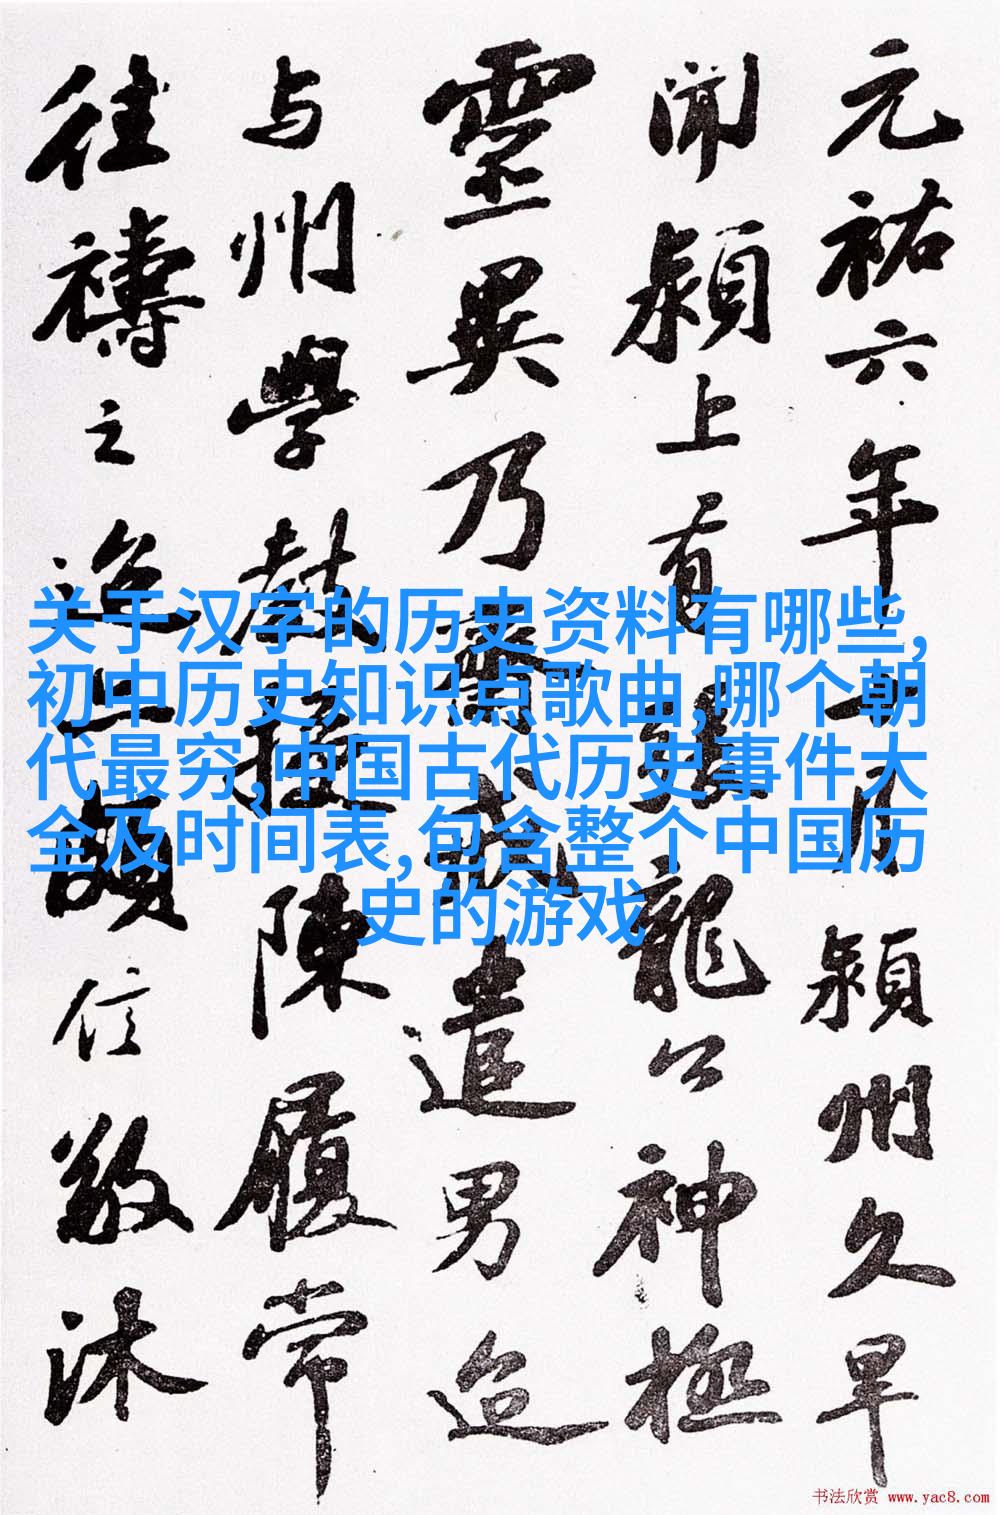 元祐六年十月潁州久旱
聞潁上有張龍公神極
靈異乃齋戒遣男迨
与州學教授陳履常
往禱之迨亦頗信敬沐
关于汉字的历史资料有哪些,
初中历史知识点歌曲,哪个朝
代最穷,中国古代历史事件大
全及时间表,包含整个中国历
史的游戏
书法欣赏 www.yac8.com